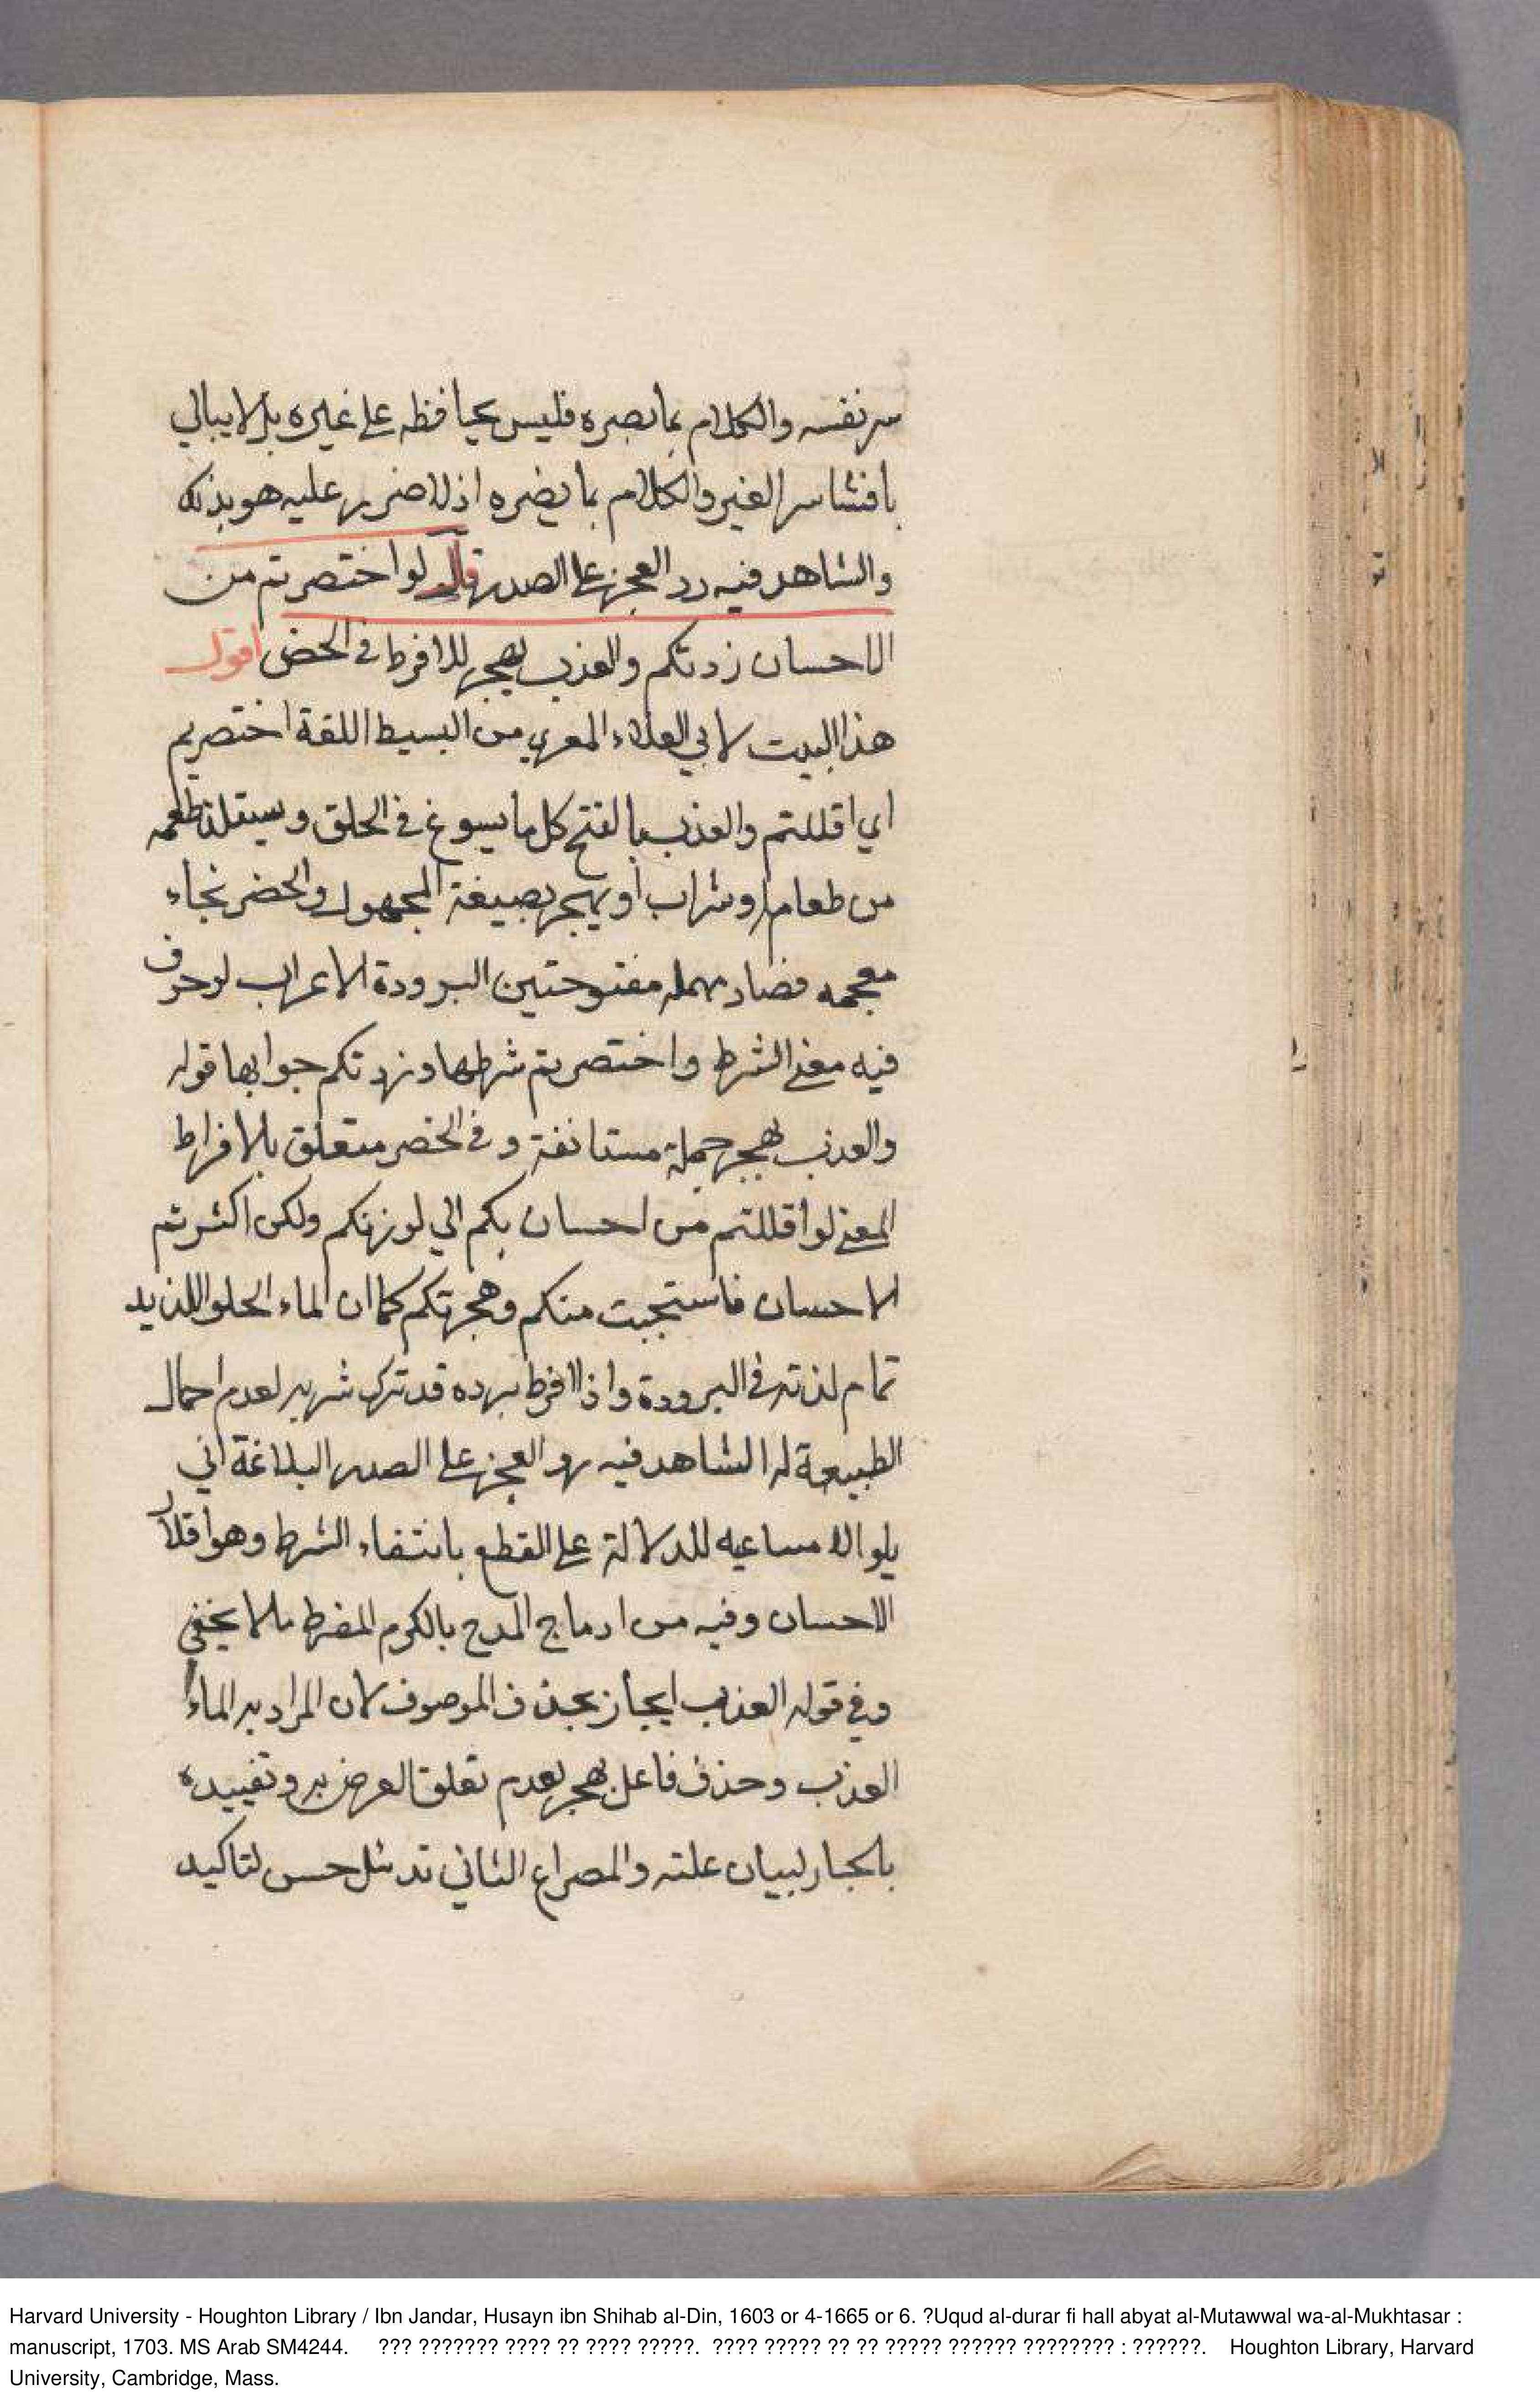 سر نفسه والكلام بما بصره فليس بحيا فظه على غيره بل لا يبالي
بافشا سر الغير والكلام بما يضره اذ لا ضرر عليه هو بذلك
والشاهد فيه رد العجز على الصدر قال لو اختصرتم من
الاحسان زدتكم والعذب يهجر للافرط في الخض اقول
هذا البيت لابي العلاء المعري من البسيط اللغة اختصرتم
اي اقللتم والعذب بالفتح كل ما يسوغ في الحلق وسيتلذ طعمه
من طعام او شراب او يهجر بصيغة المجهول والخضر نجاء
معجمه فصاد مهمله مفتوحتين البرودة الاعراب لو حرف
فيه معنى الشرط واختصرتم شرطها وزدتكم جوابها قوله
والعذب يهجر جملة مستانفة و في الخصر متعلق بالافراط
المعنى لو اقللتم من احسان بكم الي لوزرتكم ولكن اكثرتم
الاحسان فاستجبت منكم وهجرتكم كما ان الماء الحلو اللذيد
تمام لذته في البرودة واذا افرط برده قد ترك شربه لعدم احمال
الطبيعة له الشاهد فيه رد العجز على الصدر البلاغة اتي
بلو الامساعيه للدلالة على القطع بانتفاء الشرط وهو اقلال
الاحسان وفيه من ادماج المدح بالكرم المفرط ملا يخفى
وفي قوله العذب ايجاز بحذف الموصوف لان المراد به الماء
العذب وحذف فاعل يهجر لعدم تعلق العرض به وتقييده
بالجار لبيان علته والمصراع الثاني تدئل حسن لتاكيد
Harvard University - Houghton Library / Ibn Jandar, Husayn ibn Shihab al-Din, 1603 or 4-1665 or 6. ?Uqud al-durar fi hall abyat al-Mutawwal wa-al-Mukhtasar :
manuscript, 1703. MS Arab SM4244. ??? ??????? ???? ?? ???? ?????. ???? ????? ?? ?? ????? ?????? ???????? : ??????. Houghton Library, Harvard
University, Cambridge, Mass.